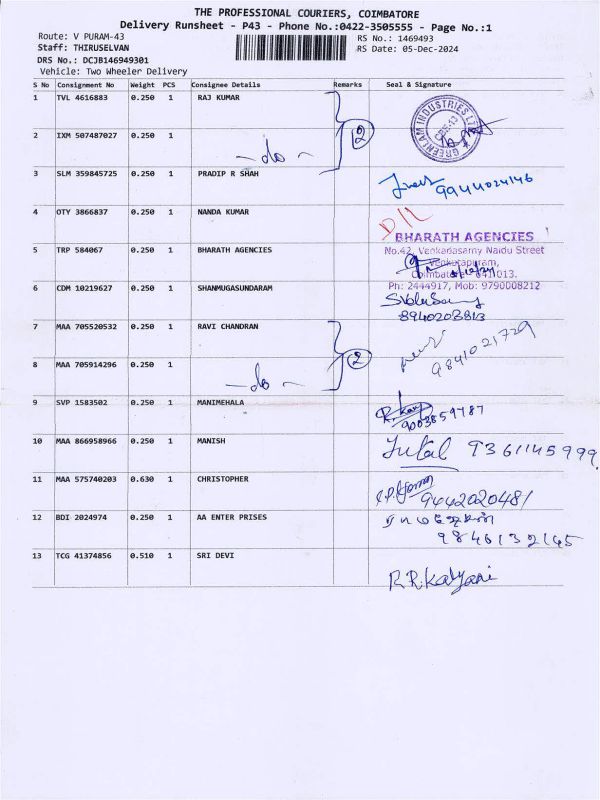 THE PROFESSIONAL COURIERS, COIMBATORE
Delivery Runsheet - P43 - Phone No.:0422-3505555 - Page No.:1
Route: V PURAM-43
RS No.: 1469493
Staff: THIRUSELVAN
RS Date: 05-Dec-2024
DRS No.: DCJB146949301
Vehicle: Two Wheeler Delivery
S No Consignment No Weight PCS Consignee Details Remarks Seal & Signature
1 TVL 4616883 0.250 1 RAJ KUMAR
GREENLAM INDUSTRIES LTD
CBE-13
2 IXM 507487027 0.250 1
- do - 2
3 SLM 359845725 0.250 1 PRADIP R SHAH
9944024146
4 OTY 3866837 0.250 1 NANDA KUMAR
D/L
BHARATH AGENCIES
No.42, Venkadasamy Naidu Street
5 TRP 584067 0.250 1 BHARATH AGENCIES
Venkatapuram,
Coimbatore - 641013.
6 CDM 10219627 0.250 1 SHANMUGASUNDARAM
Ph: 2444917, Mob: 9790008212
8940203813
7 MAA 705520532 0.250 1 RAVI CHANDRAN
9841021729
8 MAA 705914296 0.250 1
- do - 2
9 SVP 1583502 0.250 1 MANIMEHALA
9003859787
10 MAA 866958966 0.250 1 MANISH
9361145999
11 MAA 575740203 0.630 1 CHRISTOPHER
9442020481
12 BDI 2024974 0.250 1 AA ENTER PRISES
9846132145
13 TCG 41374856 0.510 1 SRI DEVI
R.R.Kalyani